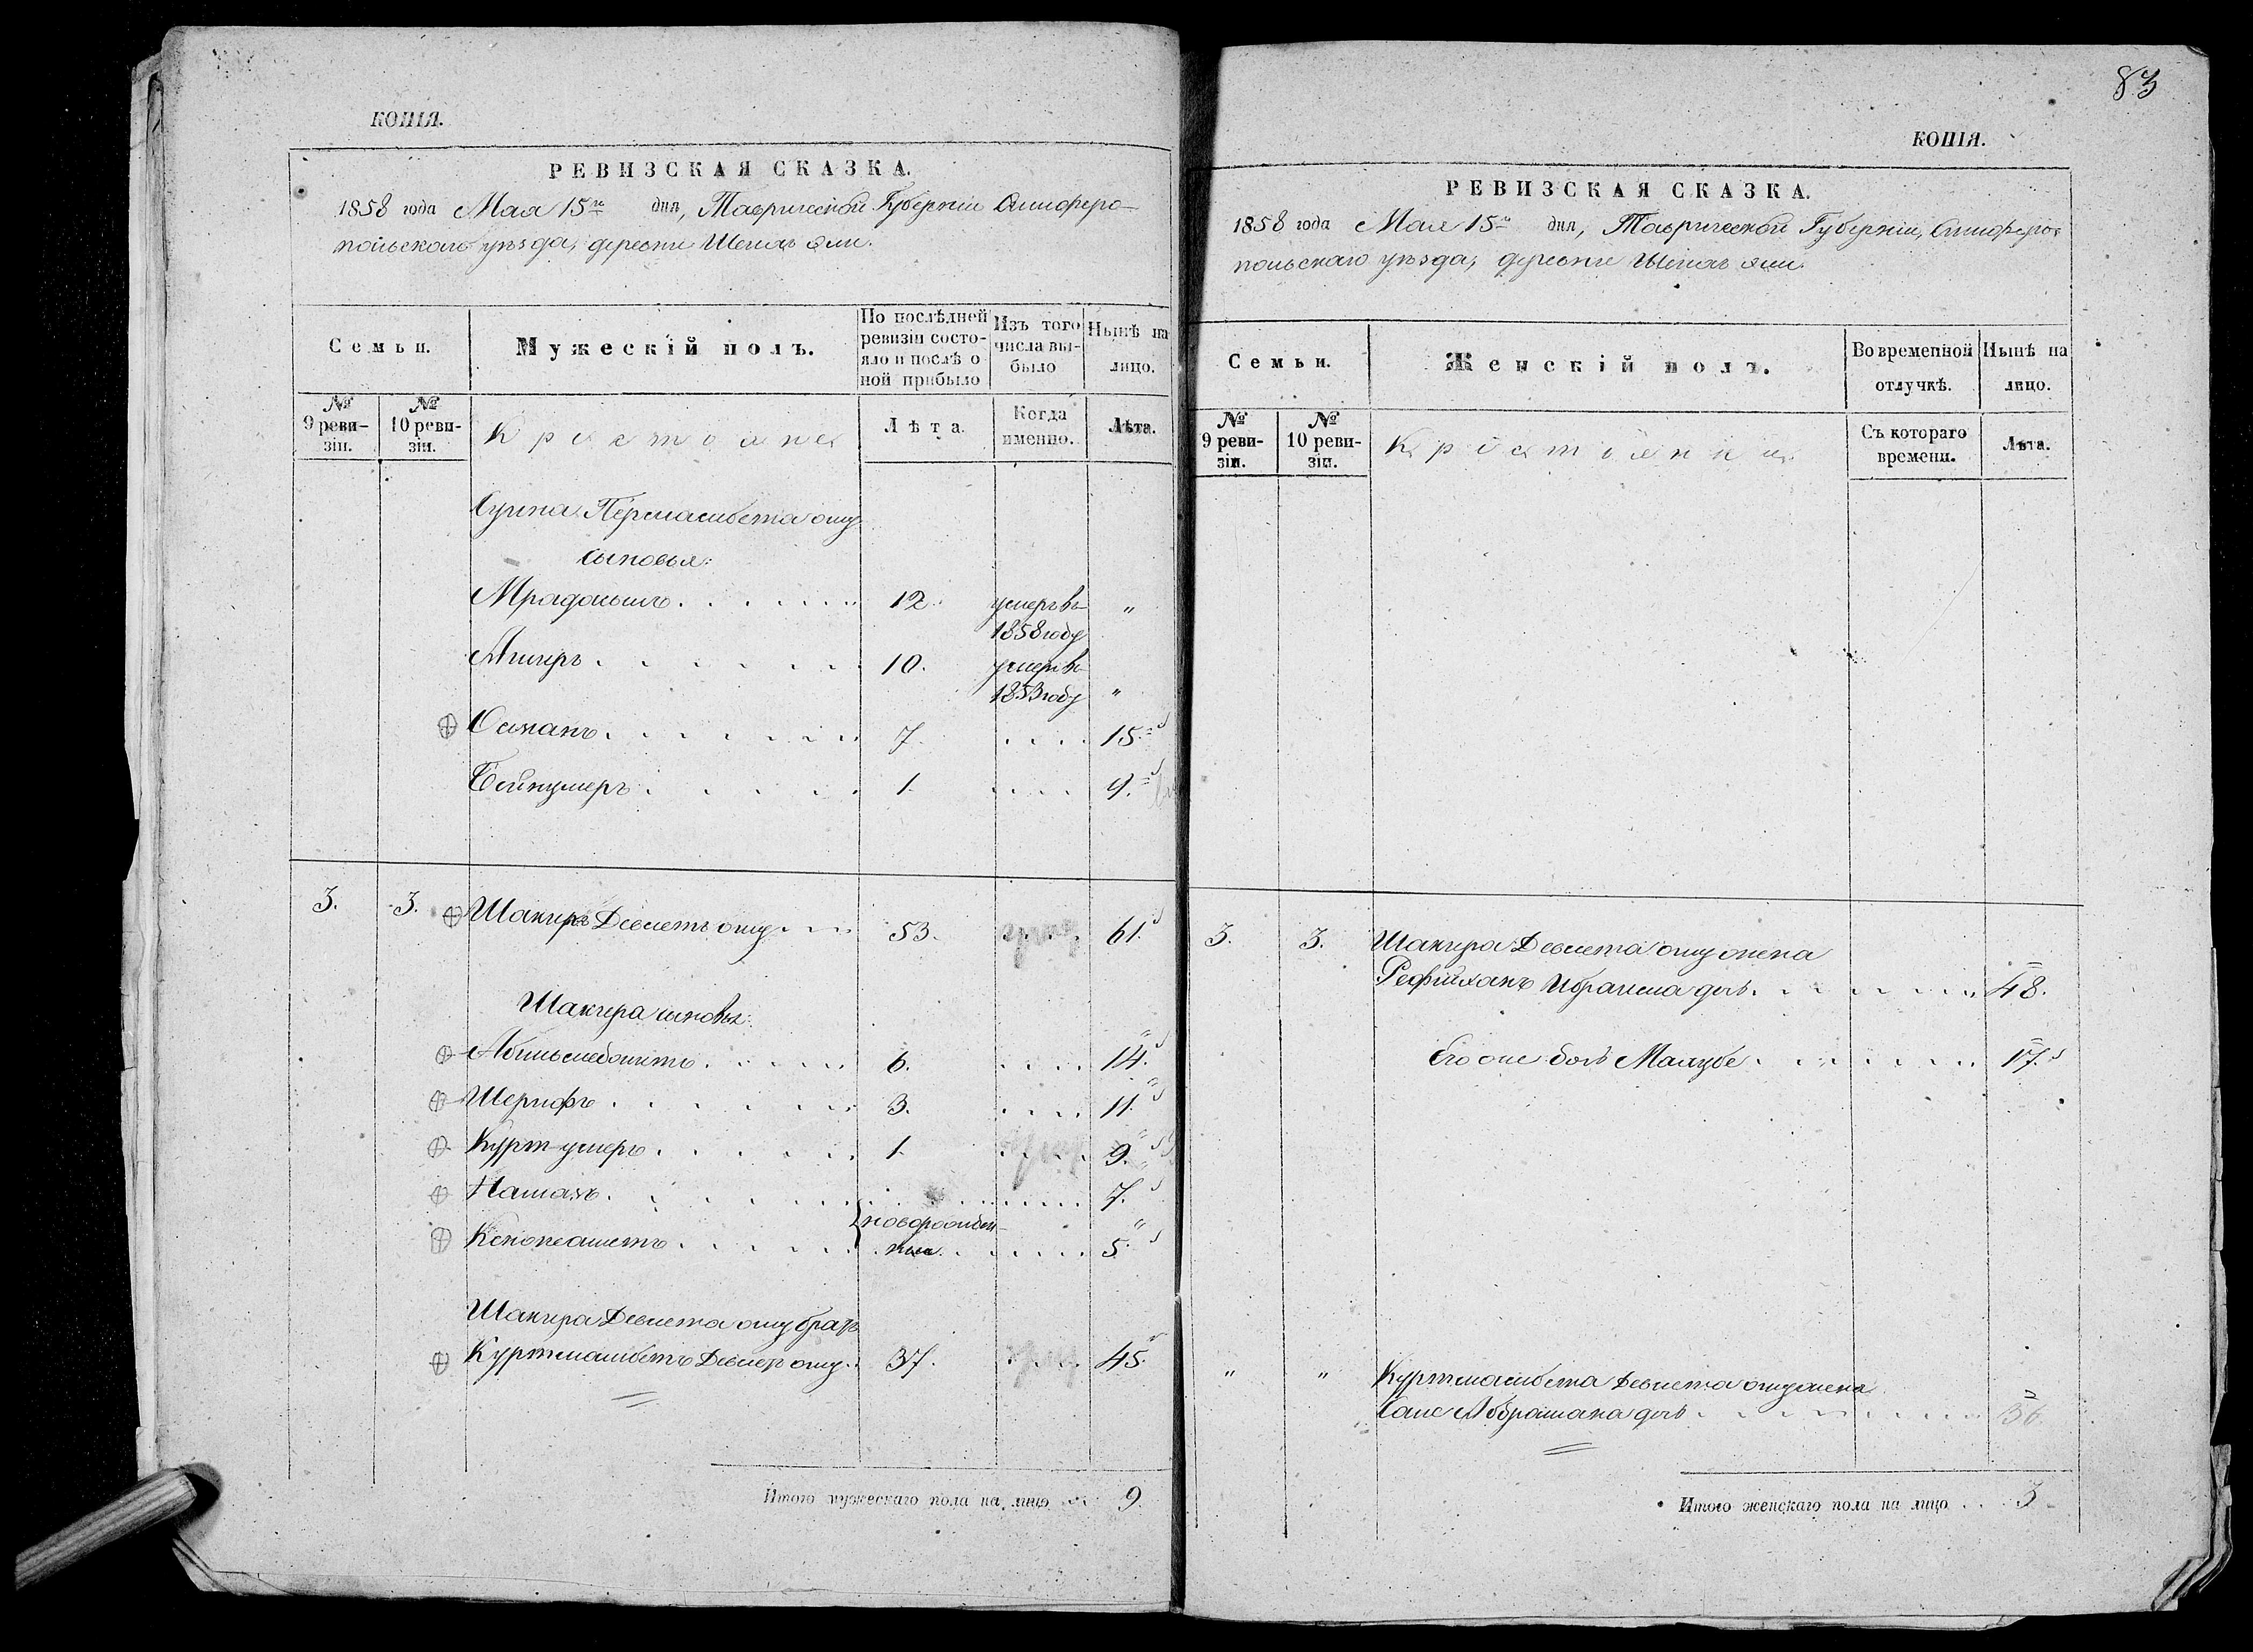 КОПІЯ.
РЕВИЗСКАЯ СКАЗКА.
1858 года Мая 15го дня, Таврической Губерніи Симферо-
польскаго уѣзда, деревни
Семьи.
Мужескій полъ.
По послѣдней
ревизіи состо-
яло и послѣ о
ной прибыло
Изъ того
числа вы-
было
Нынѣ на
лицо.
№
9 реви-
зіи.
№
10 реви-
зіи.
Крестьяне
Лѣта.
Когда
именно.
Лѣта.
оглу
сыновья:
12. умеръ въ "
1858 году
10. умеръ въ
1853 году "
Османъ 7. 15.
Бейкумеръ 1. 9.
3. 3. Шакиръ Девлетъ оглу 53. 61.
Шакира сыновья:
6. 14.
Шерифъ 3. 11.
Куртъ-умеръ 1. 9.
7.
новорожден-
ные 5.
Шакира Девлета оглу братъ
Куртмамбетъ Девлетъ оглу 37. 45.
Итого мужескаго пола на лицо 9.
83
КОПІЯ.
РЕВИЗСКАЯ СКАЗКА.
1858 года Мая 15го дня, Таврической Губерніи, Симферо-
польскаго уѣзда, деревни
Семьи.
Женскій полъ.
Во временной
отлучкѣ.
Нынѣ на
лицо.
№
9 реви-
зіи.
№
10 реви-
зіи.
Крестьянки
Съ котораго
времени.
Лѣта.
3. 3. Шакира Девлета оглу жена
Ибраима дочь 48.
Его же дочь 17.
" " Куртмамбета Девлета оглу жена
дочь 36.
Итого женскаго пола на лицо 3